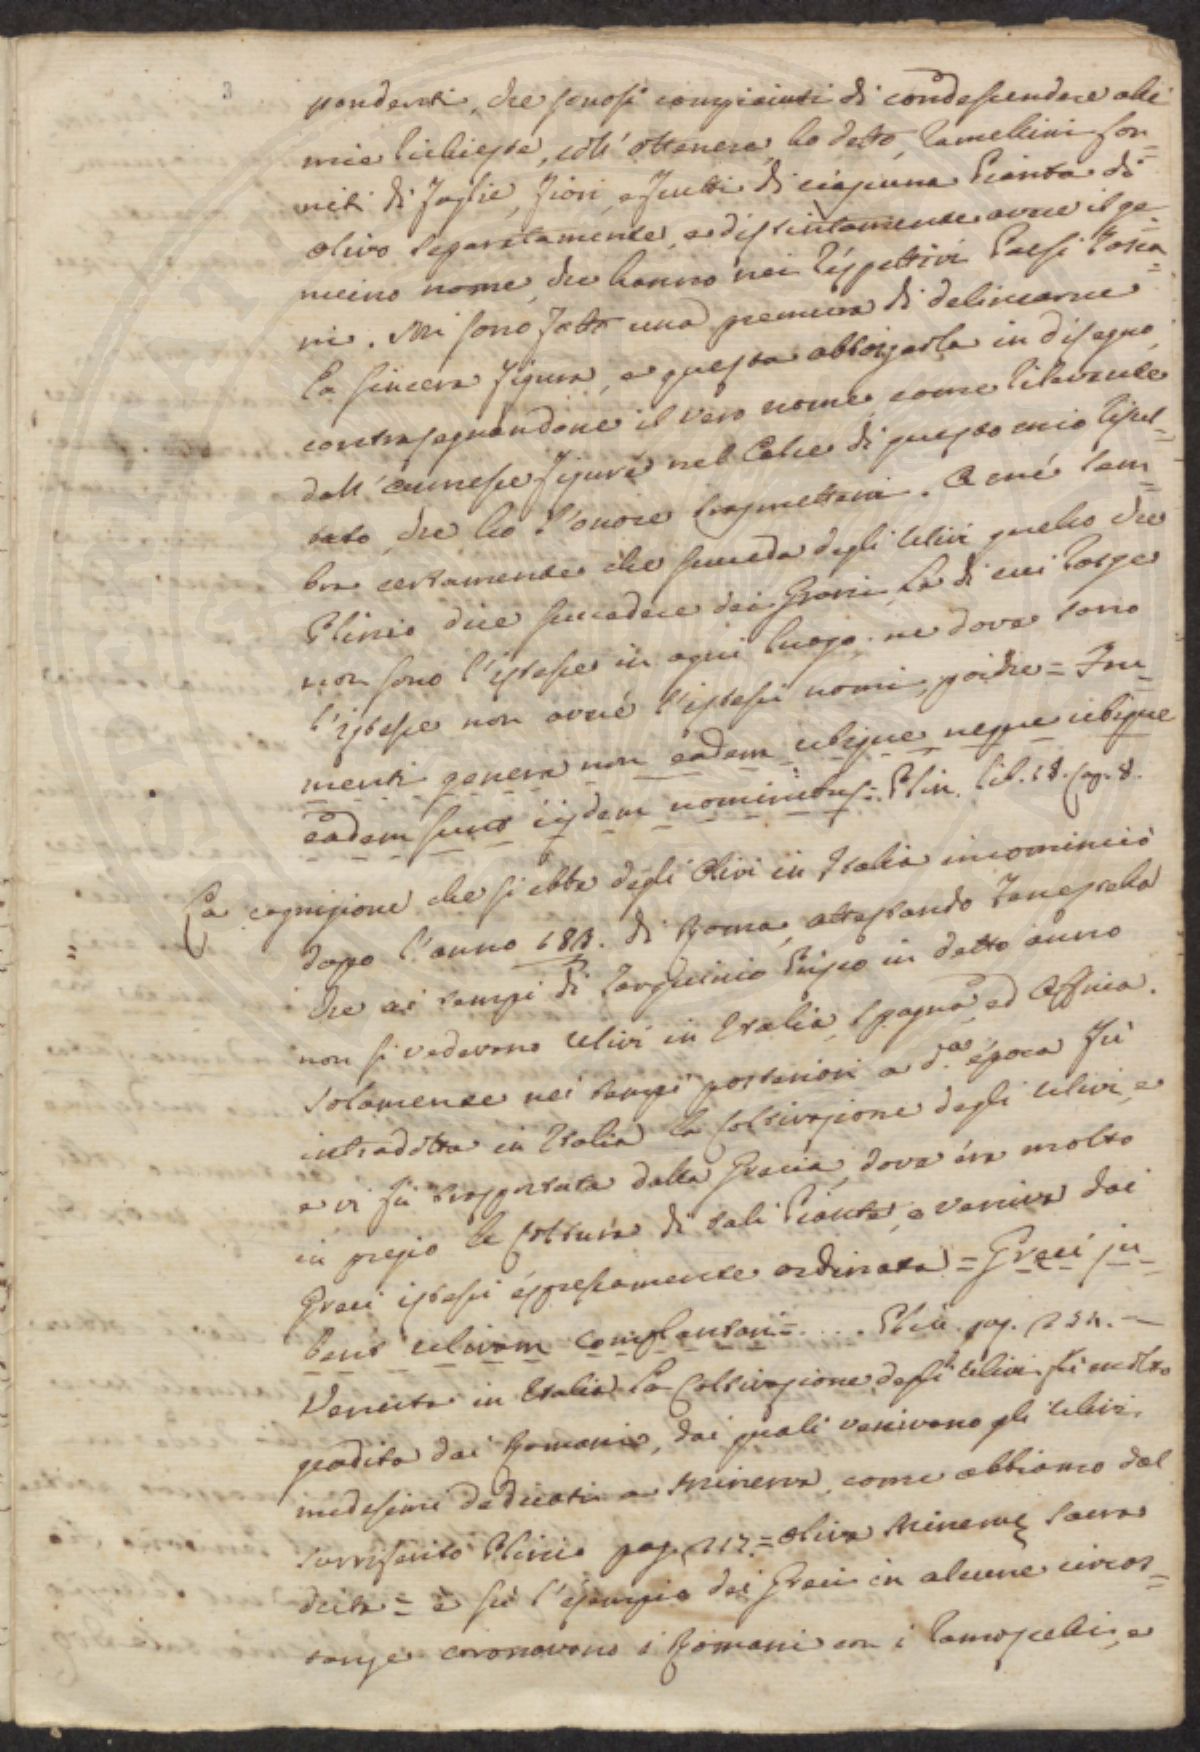 3
pondenti, che sonosi compiaciuti di condescendere alle
mie richieste, coll'ottenere, ho detto, ramellini for=
niti di foglie, fiori, e frutti di ciascuna Pianta di
olivo separatamente, e distintamente avere il ge=
nuino nome, che hanno nei rispettivi Paesi Tosca=
ni. Mi sono fatto una premura di delinearne
la sincera figura, e questa abbozzarla in disegno,
contrasegnandone il vero nome, come rileverete
dall'annesse figure nel Calce di questo mio risul=
tato, che ho l'onore trasmettervi. A me sem=
bra certamente che succeda degli Ulivi quello che
Plinio dice succedere dei Grani, la di cui razze
non sono l'istesse in ogni luogo, ne dove sono
l'istesse non avere l'istessi nomi, poiche = Fru=
menti genera non eadem ubique neque ubique
eadem sunt iisdem nominibus =. Plin. lib. 18. Cap. 8.
La cognizione che si ebbe degli Olivi in Italia incominciò
dopo l'anno 183. di Roma, attestando Fenestella
che ai tempi di Tarquinio Prisco in detto anno
non si vedevano Ulivi in Italia, Spagna, ed Affrica.
Solamente nei tempi posteriori a d.a época fù
introdotta in Italia la Coltivazione degli Ulivi, e
e vi fù trasportata dalla Grecia, dove era molto
in pregio la Coltura di tali Piante, e veniva dai
Greci istessi espressamente ordinata = Greci ju=
bent ulivam complantari = .... Plin. pag. 252. —
Venuta in Italia la Coltivazione degli Ulivi fù molto
gradita dai Romani, dai quali venivano gli Ulivi
medesimi dedicati a Minerva, come abbiamo dal
surriferito Plinio pag. 217. = Oliva Minervę sacra
dicta = e fù l'esempio dei Greci in alcune circos=
tanze coronavano i Romani con i ramoscelli, e